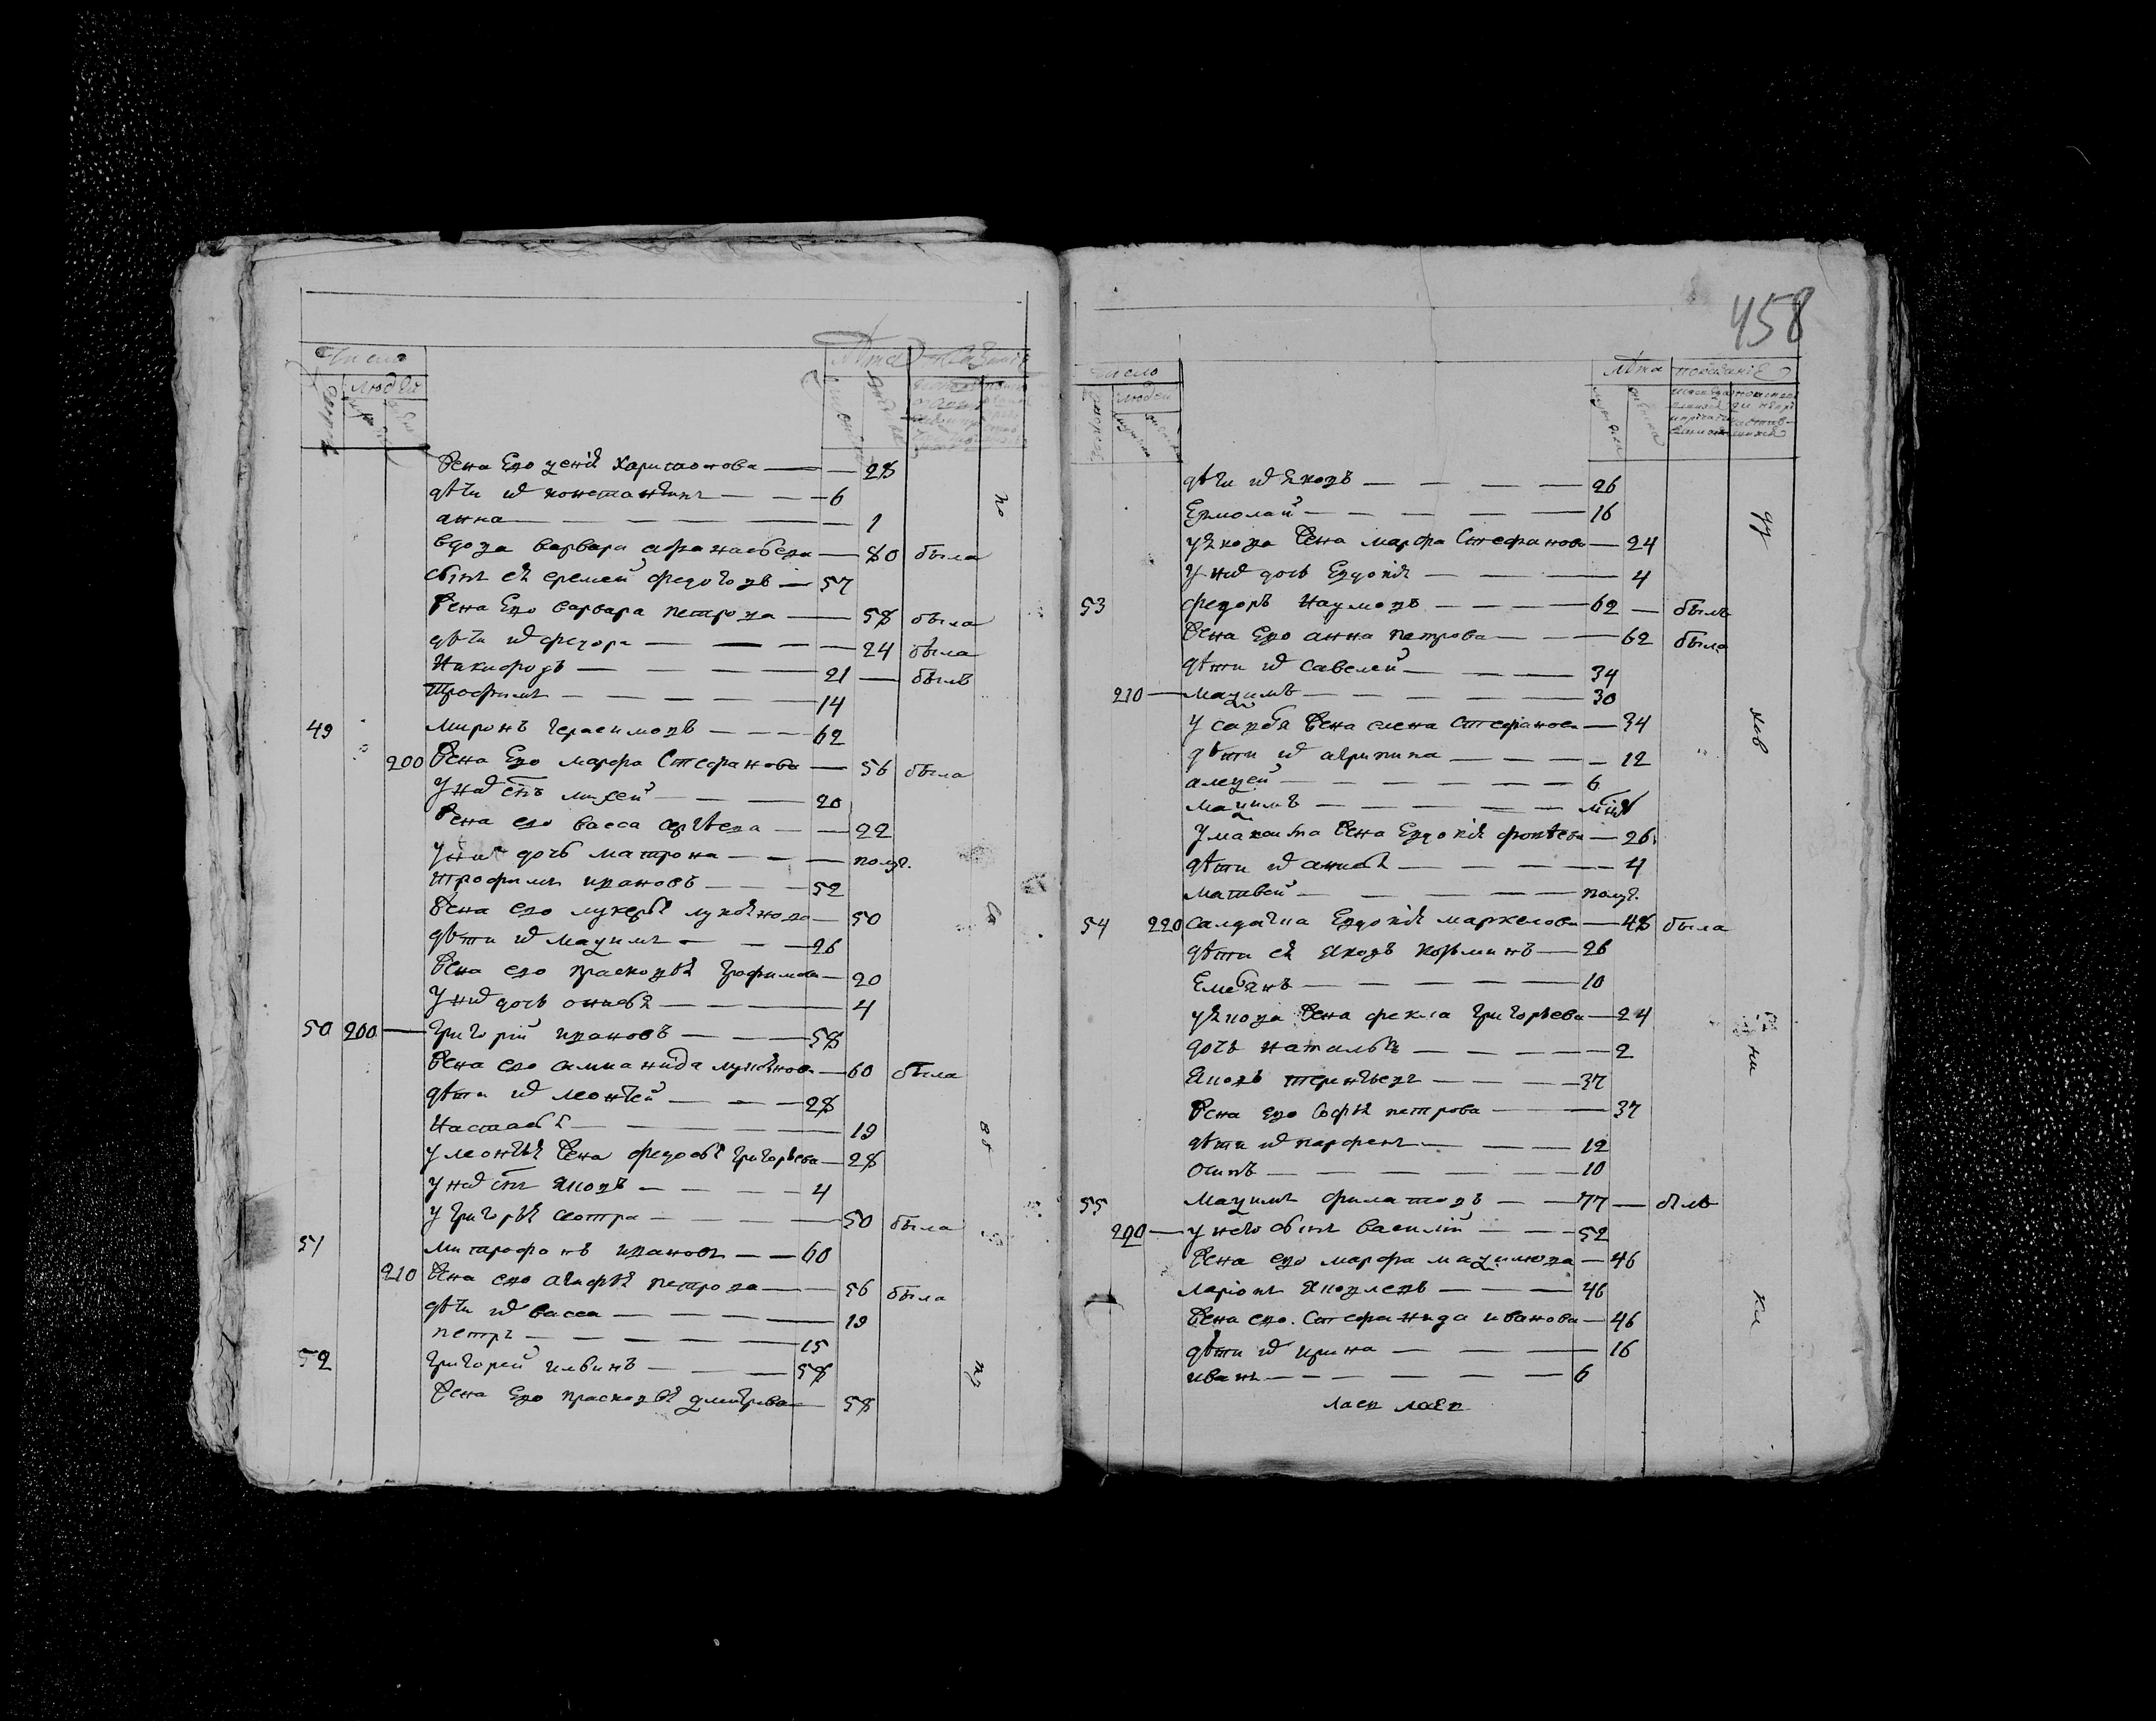 Число
людей
лѣта
жена Ево ѯенія Харитонова — 28
дѣти их константинъ — 6
анна — 1
вдова варвара афанасьева — 80 была
сынъ ея еремей федотовъ — 57
жена Ево варвара петрова — 58 была
дѣти их федора — 24 была
Никифоръ — 21 — былъ
трофимъ — 14
49 миронъ герасимовъ — 62
200 жена Ево марфа Стефанова — 56 была
У них снъ михей — 20
жена ево васса сергѣева — 22
у них дочь матрона — полуг.
трофимъ ивановъ — 52
жена ево лукерья лукьянова — 50
дѣти их маѯимъ — 26
жена ево прасковья трофимова — 20
У них дочь анисья — 4
50 200 — григорій ивановъ — 58
жена ево соломанида лукьянова — 60 была
дѣти их леонтей — 28
Настасья — 19
у леонтья жена федосья григорьева — 28
у них снъ яковъ — 4
у григорья сестра — 50 была
51 митрофонъ ивановъ — 60
210 жена ево агафья петрова — 56 была
дѣти их васса — 19
петръ — 15
52 григорей ильинъ — 58
жена Ево прасковья дмитрева — 58
по
св
458
число
людей
лѣта показаніе
дѣти их яковъ — 26
Ермолай — 16
у якова жена марфа Стефанова — 24
У них дочь Евдокія — 4
53 федоръ Наумовъ — 62 — былъ
жена Ево анна петрова — 62 была
дѣти их савелей — 34
210 — маѯимъ — 30
у савелья жена елена Стефанова — 34
дѣти их акрипина — 12
алеѯей — 6
маѯимъ
У максима жена Евдокія фотѣева — 26
дѣти их анисья — 4
матвей — полуг.
54 220 салдатка Евдокія маркелова — 48 была
дѣти ея яковъ козминъ — 26
Емельянъ — 10
у якова жена фекла григорьева — 24
дочь наталья — 2
яковъ терентьевъ — 37
жена ево софья петрова — 37
дѣти их парфенъ — 12
осипъ — 10
55 маѯимъ филатовъ — 77 — былъ
220 — у него сынъ василій — 52
жена ево марфа маѯимова — 46
ларіонъ яковлевъ — 46
жена ево Стефанида иванова — 46
дѣти их ирина — 16
иванъ — 6
ду
хов
ни
ки